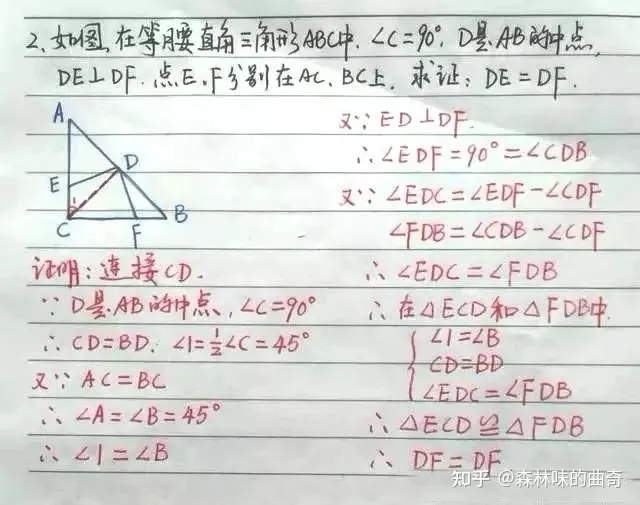 2、如图,在等腰直角三角形ABC中,∠C=90°,D是AB的中点,
DE⊥DF.点E、F分别在AC、BC上.求证:DE=DF.
A
D
E
1
C
F
B
证明:连接CD.
∵D是AB的中点,∠C=90°
∴CD=BD.∠1=½∠C=45°
又∵AC=BC
∴∠A=∠B=45°
∴∠1=∠B
又∵ED⊥DF.
∴∠EDF=90°=∠CDB
又∵∠EDC=∠EDF-∠CDF
∠FDB=∠CDB-∠CDF
∴∠EDC=∠FDB
∴在△ECD和△FDB中.
∠1=∠B
CD=BD
∠EDC=∠FDB
∴△ECD≌△FDB
∴DF=DF
知乎 @森林味的曲奇